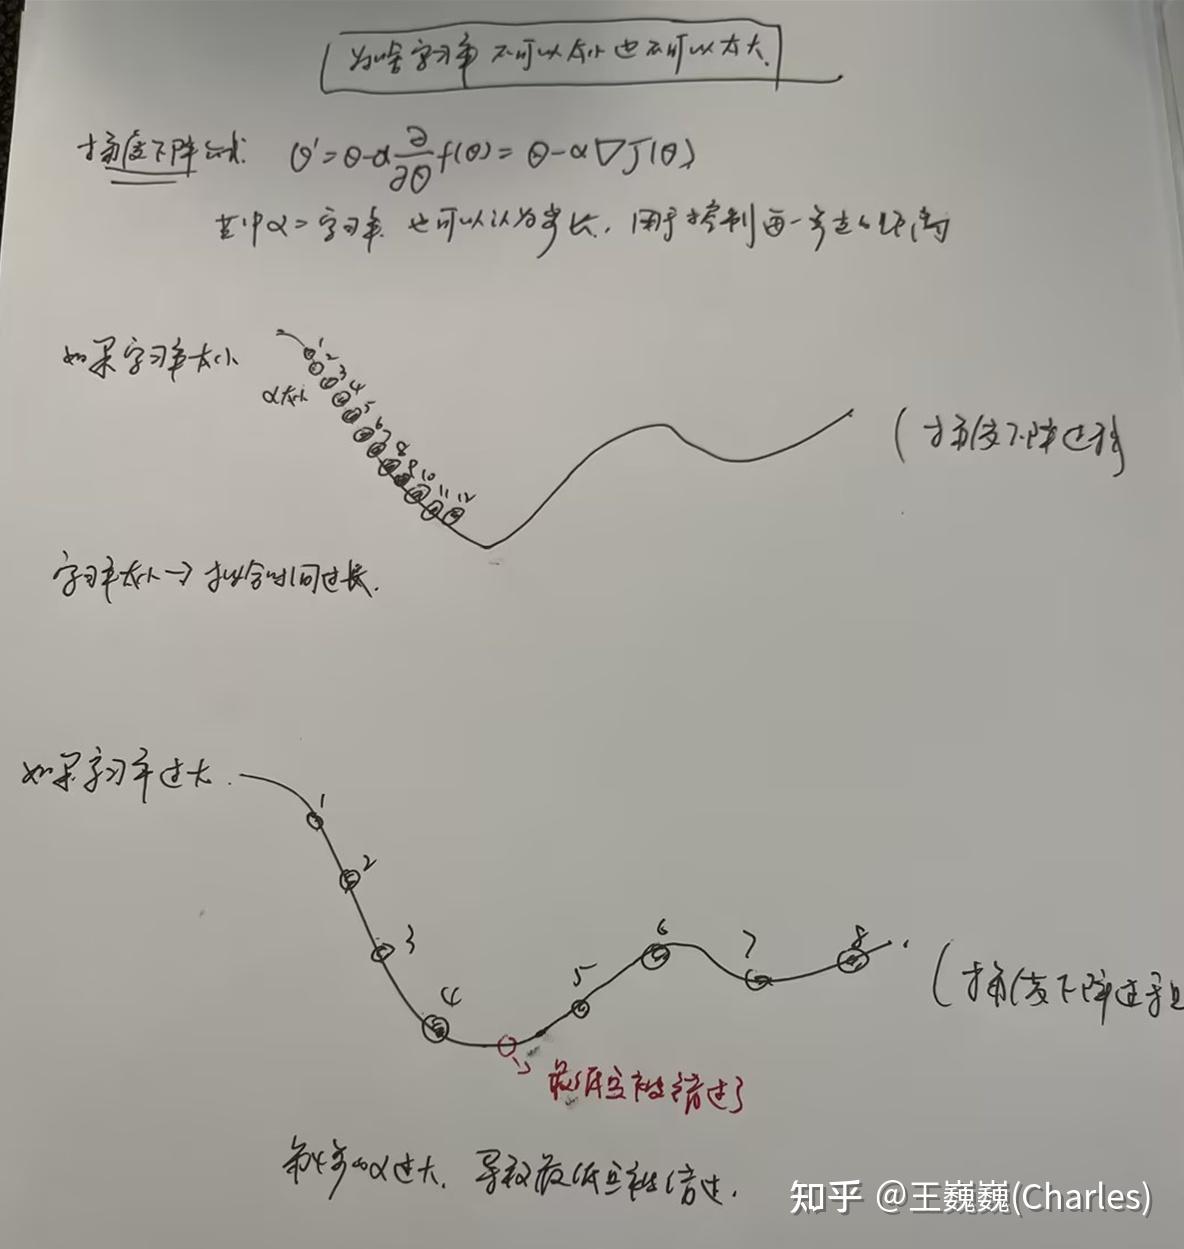 为啥学习率不可以太小也不可以太大.
梯度下降公式: θ' = θ - α ∂/∂θ f(θ) = θ - α ∇J(θ)
其中α = 学习率 也可以认为步长, 用于控制每一步走的距离
如果学习率太小
α太小
1 2 3 4 5 6 7 8 9 10 11 12
(梯度下降过程)
学习率太小 → 拟合时间过长.
如果学习率过大.
1
2
3
4
5
6
7
8
(梯度下降过程
最低点被错过了
第4步的α过大, 导致最低点被错过.
知乎 @王巍巍(Charles)